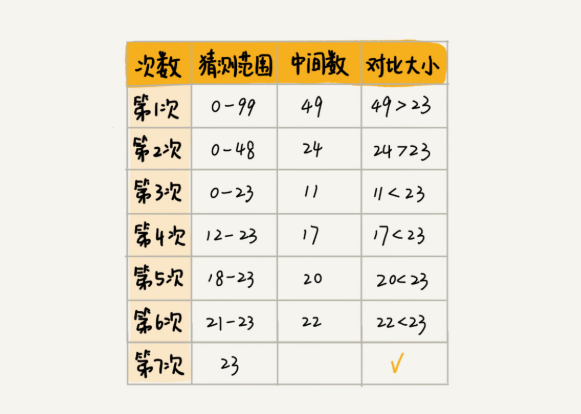 次数 猜测范围 中间数 对比大小
第1次 0-99 49 49>23
第2次 0-48 24 24>23
第3次 0-23 11 11<23
第4次 12-23 17 17<23
第5次 18-23 20 20<23
第6次 21-23 22 22<23
第7次 23 ✓